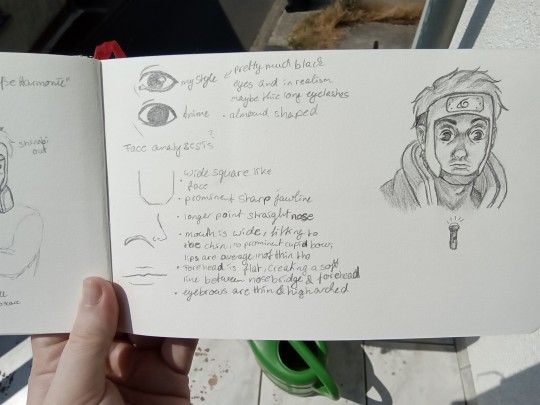 my style
• pretty much black
eyes and in realism
maybe thic long eyelashes
• almond shaped
Anime
?
Face analysis
• wide square like
face
• prominent sharp jawline
• longer point straight nose
• mouth is wide, fitting to
the chin, no prominent cupid bow,
lips are average if not thin tho
• Forehead is flat, creating a soft
line between nosebridge & forehead
• eyebrows are thin & high arched
out